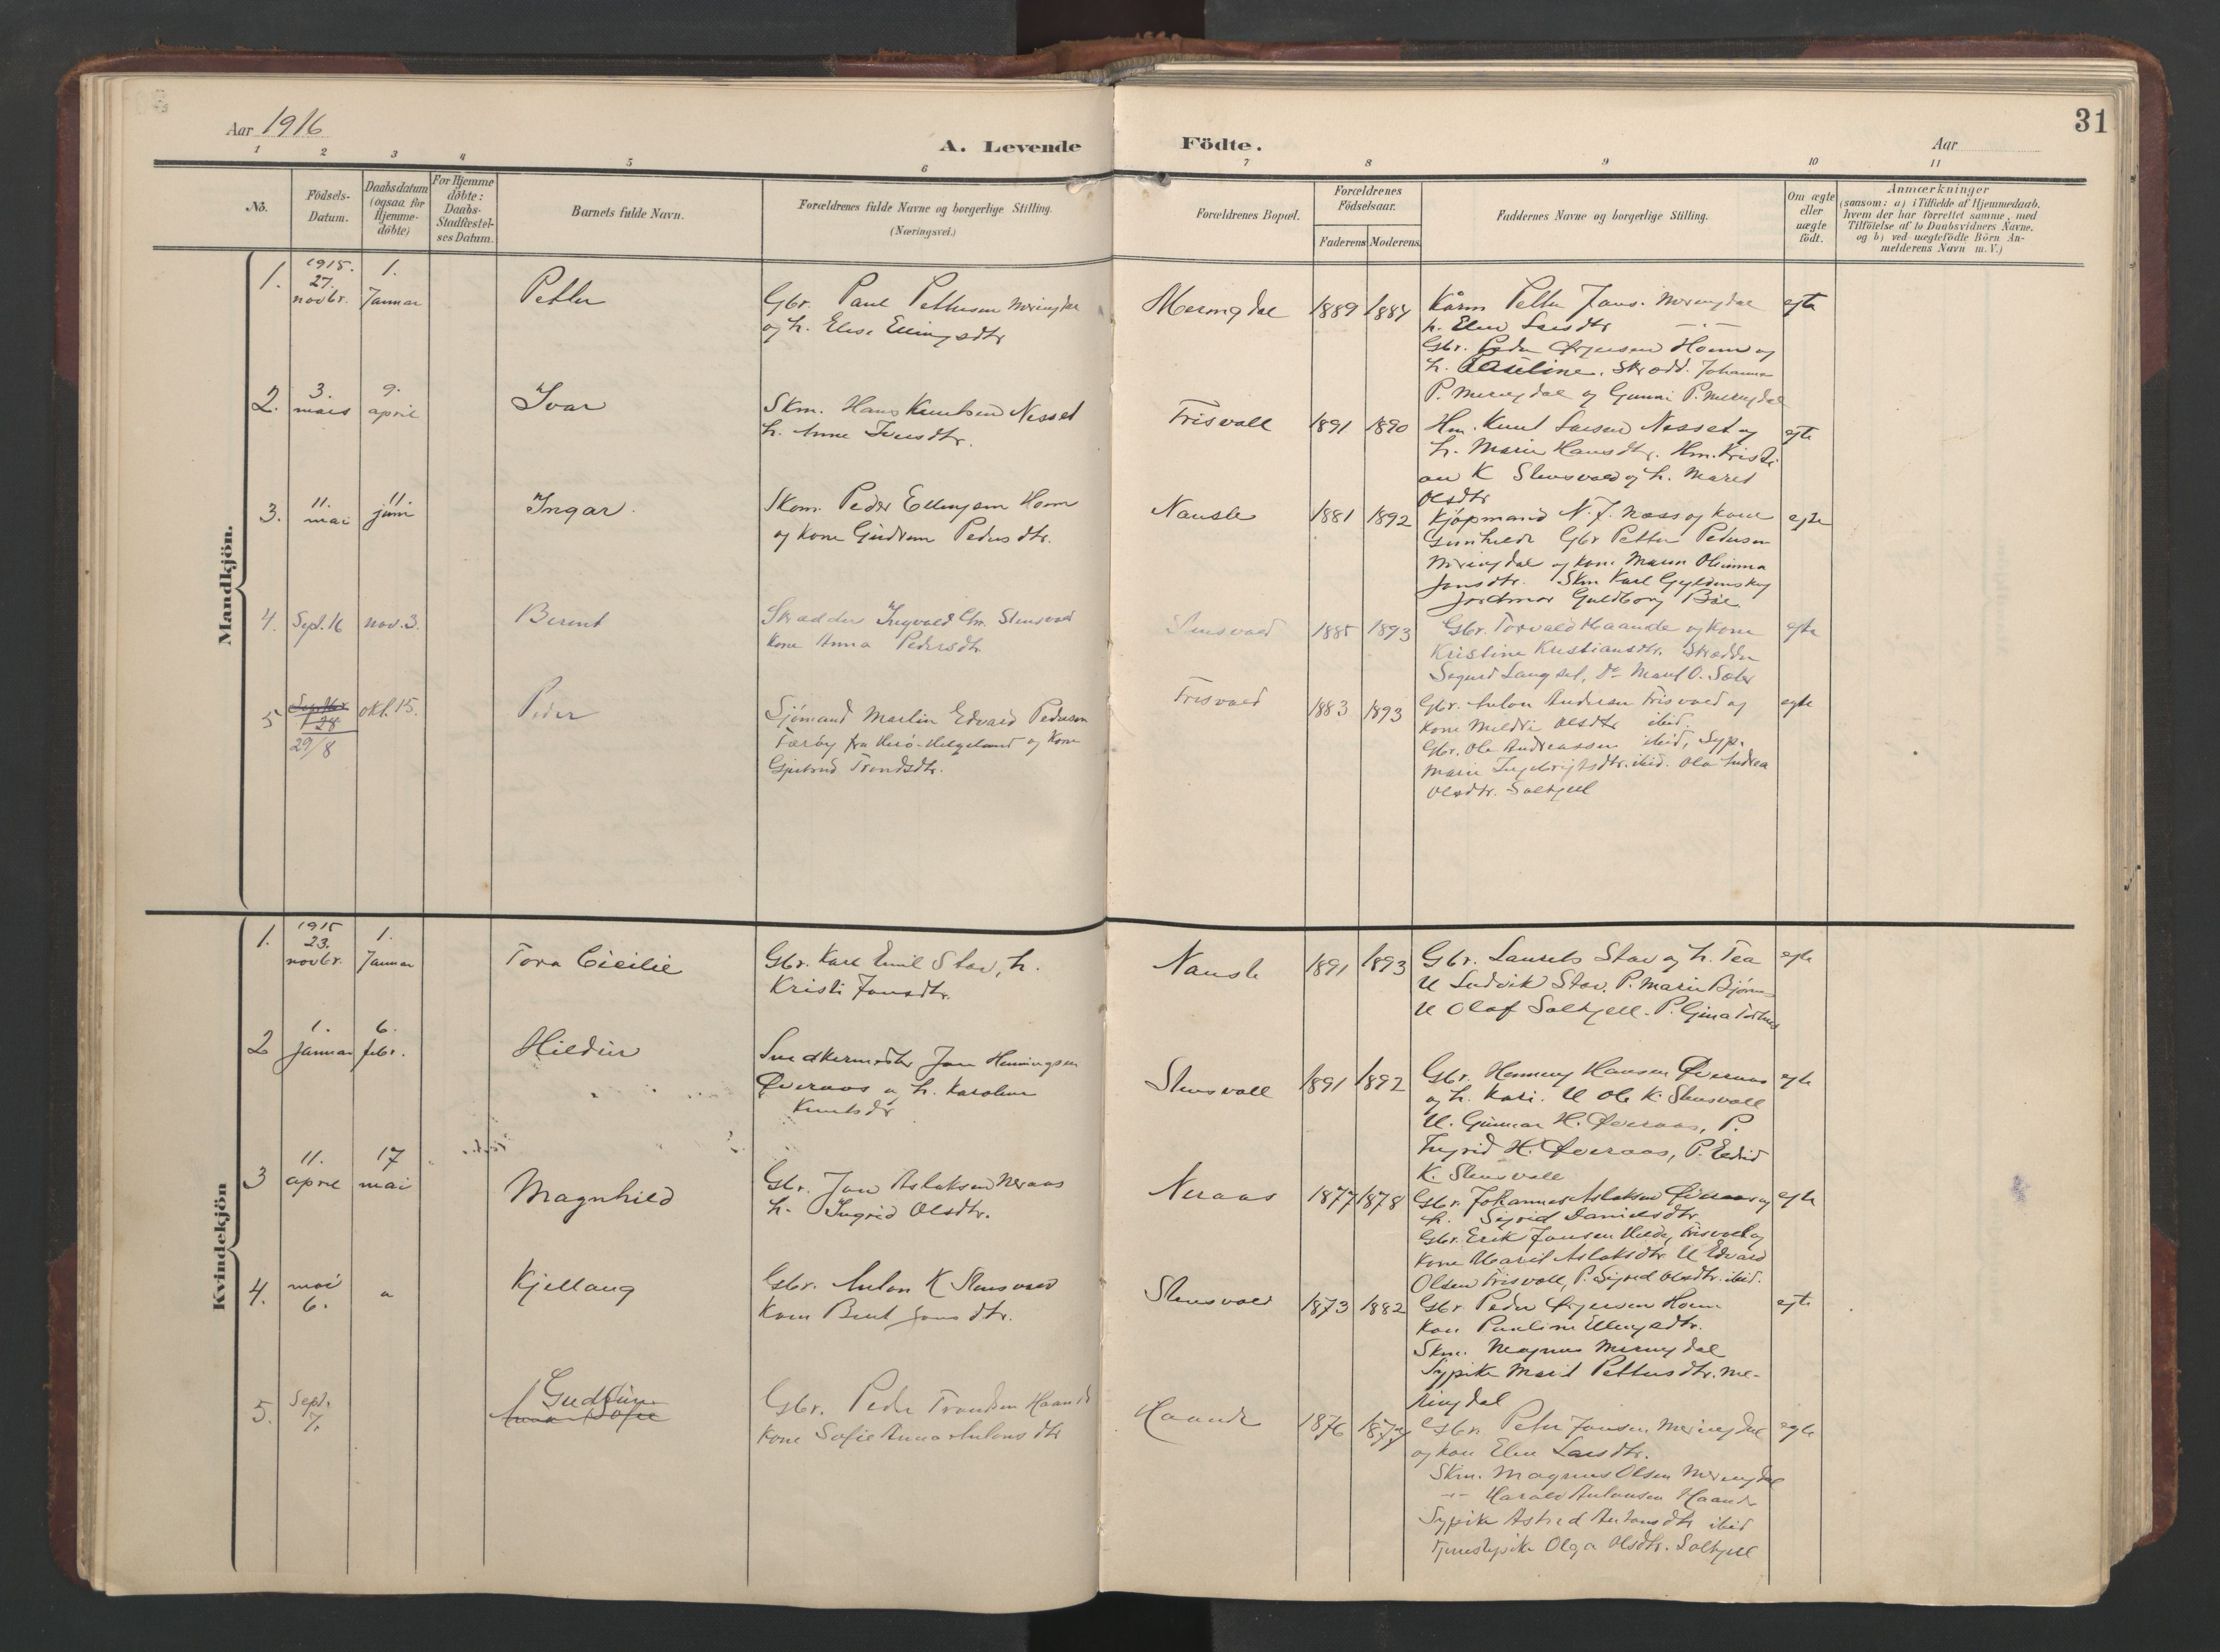 31
Aar 1916
A. Levende Födte.
Aar
1 2 3 4 5 6 7 8 9 10 11
No.
Födsels-
Datum.
Daabsdatum
(ogsaa for
Hjemme-
döbte)
For Hjemme
döbte:
Daabs-
Stadfæstel-
ses Datum.
Barnets fulde Navn.
Forældrenes fulde Navne og borgerlige Stilling.
(Næringsvei.)
Forældrenes Bopæl.
Forældrenes
Födselsaar.
Faderens Moderens
Faddernes Navne og borgerlige Stilling.
Om ægte
eller
uægte
födt.
Anmærkninger
(saasom: a) i Tilfælde af Hjemmedaab,
hvem der har forrettet samme, med
Tilföielse af to Daabsvidners Navne,
og b) ved uægtefödte Börn An-
melderens Navn m. V.)
Mandkjön.
1. 1915. 27. novbr. 1. Januar
Petter
Gbr. Paul Pettersen Meringdal
og h. Elise Ellingsdtr
Meringdal 1889 1884
Kårm Petter Jons. Meringdal
h. Elen Larsdtr —·—
Gbr. Peder Ørjensen Hoem og
h. Pauline. Skrædd. Johanna
P. Meringdal og Gunni P. Meringdal
egte
2. 3. mars 9. april
Ivar
Skm. Hans Knutsen Nesset
h. Anne Iversdtr.
Frisvoll 1891 1890
Hm. Knut Larsen Nesset og
h. Marie Hansdtr. Hm. Kristi
an K Stensvold og h. Marit
Olsdtr
egte
3. 11. mai 11. juni
Ingar.
Skom. Peder Ellingsen Hoem
og kone Gudrun Pedersdtr.
Nauste 1881 1892
Kjøpmand N. J. Næss og kone
Gunhild Gbr Petter Pedersen
Meringdal og kone Maren Olianna
Jonsdtr. Skm Karl Gyldenskog
Jordmor Guldborg Bøe
egte
4. Sept. 16 nov. 3.
Berent
Skrædder Ingvald Chr. Stensvold
kone Anna Pedersdtr
Stensvold 1885 1893
Gbr. Torvald Haande og kone
Kristine Kristiansdtr. Skrædder
Sigurd Langset, do Marit O. Sæter
egte
5 Septbr 28 29/8 okt. 15.
Peder
Sjömand Martin Edvard Pederson
Færöy fra Herö-Helgeland og kone
Gjertrud Trondsdtr.
Frisvold 1883 1893
Gbr. Anton Andersen Frisvold og
kone Mildri Olsdtr ibid.
Gbr. Ole Andreassen ibid, Syp.
Marie Ingebrigtsdtr. ibid. Ola Andrea
Olsdtr. Soltjell
egte
Kvindekjön
1. 1915 23. novbr. 1. Januar
Tora Cicilie
Gbr. Karl Emil Stav, h.
Kristi Jonsdtr.
Nauste 1891 1893
Gbr. Laurits Stav og h. Tea
U Ludvik Stav. P. Marie Bjørnes
U Olaf Soltjell. P. Gina
egte
2 1. januar 6. febr.
Hildur
Snedkermester Jon Henningsen
Øveraas og h. Karoline
Knutsdr
Stensvoll 1891 1892
Gbr. Henning Hansen Øveraas
og h. Kari. U Ole K. Stensvoll
U. Gunnar H. Øveraas, P.
Ingrid H. Øveraas, P.
K. Stensvoll
egte
3 11. april 17 mai
Magnhild
Gbr. Jon Aslaksen Neraas
h. Ingrid Olsdtr.
Neraas 1877 1878
Gbr. Johannes Aslaksen Øveraas og
h. Sigrid Danielsdtr
Gbr. Erik Jonsen Frisvold og
kone Marit Aslaksdtr. U Edvard
Olsen Frisvoll, P. Sigrid Olsdtr. ibid.
egte
4. mai 6. "
Kjellaug
Gbr. Anton K Stensvold
kone Berit Jonsdtr.
Stensvold 1873 1882
Gbr Peder Ørjensen Hoem
kone Pauline Ellingsdtr.
Skm. Magnus Meringdal
Sypike Marit Pettersdtr. Me-
ringdal
egte
5. Sept. 7.
Gudrun
Anna Sofie
Gbr. Peder Trondsen Haande
kone Sofie Anna Antonsdtr
Haande 1876 1877
Gbr. Peter Jonsen Meringdal
og kone Elen Larsdtr.
Skm. Magnus Olsen Meringdal
-"- Harald Antonsen Haande
Sypike Astrid Antonsdtr ibid
Tjenestepike Olga Olsdtr. Soltjell
egte